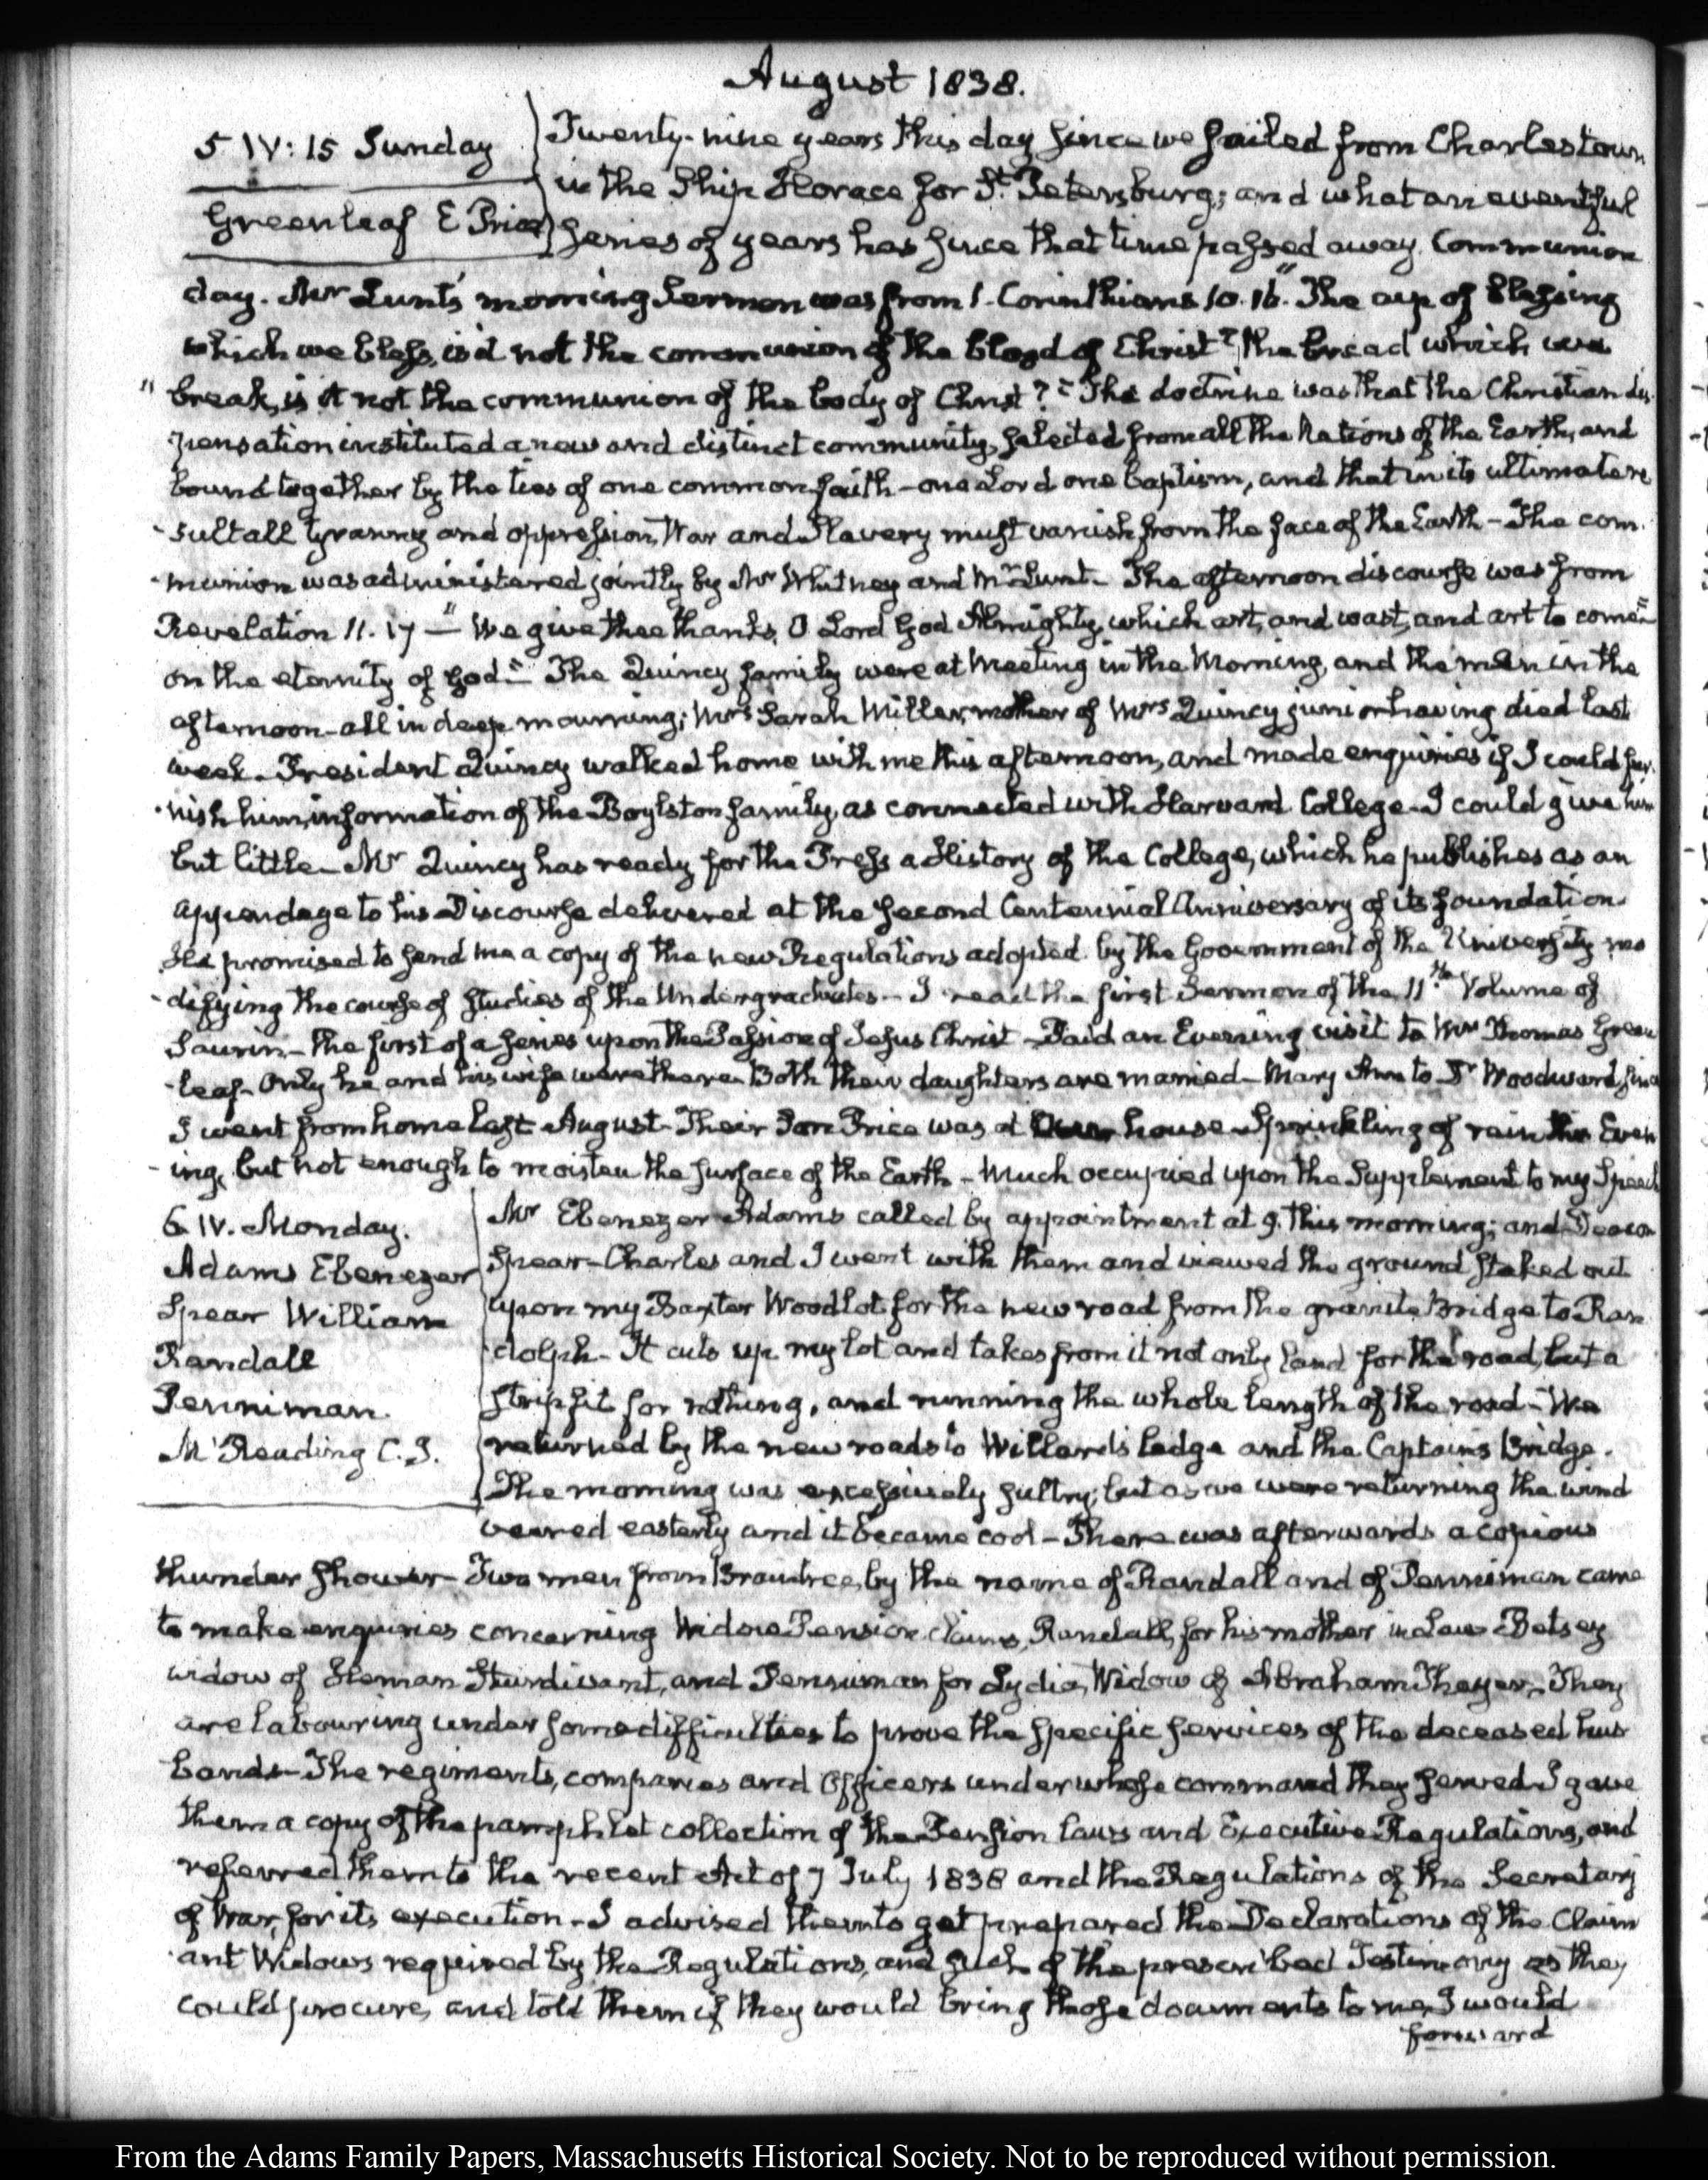 August 1838.
5 IV:15 Sunday
Greenleaf E Price
Twenty-nine years this day since we sailed from Charlestown
in the Ship Horace for St. Petersburg; and what an eventful
series of years has since that time passed away. Communion
day. Mr Lunt's morning Sermon was from 1. Corinthians 10.16. "The cup of blessing
which we bless, is it not the communion of the blood of Christ? the bread which we
" break, is it not the communion of the body of Christ?" The doctrine was that the Christian dis-
pensation instituted a new and distinct community, selected from all the Nations of the Earth, and
bound together by the ties of one common faith - one Lord one baptism, and that in its ultimate re
-sult all tyranny and oppression, War and Slavery must vanish from the face of the Earth - The com
-munion was administered jointly by Mr Whitney and Mr Lunt - The afternoon discourse was from
Revelation 11.17 - "We give thee thanks, O Lord God Almighty, which art, and wast, and art to come"
on the eternity of God - The Quincy family were at Meeting in the Morning, and the men in the
afternoon - all in deep mourning; Mrs Sarah Miller, mother of Mrs Quincy junior having died last
week - President Quincy walked home with me this afternoon, and made enquiries if I could fur-
-nish him information of the Boylston family, as connected with Harvard College - I could give him
but little - Mr Quincy has ready for the Press a History of the College, which he publishes as an
appendage to his Discourse delivered at the second Centennial Anniversary of its foundation
He promised to send me a copy of the new Regulations adopted by the Government of the University mo
-difying the course of studies of the Undergraduates - I read the first Sermon of the 11th Volume of
Saurin - the first of a series upon the Passion of Jesus Christ - Paid an Evening visit to Mr Thomas Green
-leaf - Only he and his wife were there - Both their daughters are married - Mary Ann to Dr Woodward, since
I went from home last August - Their Son Price was at our house - Sprinkling of rain this Even
-ing, but not enough to moisten the surface of the Earth - Much occupied upon the Supplement to my Speech
6 IV. Monday.
Adams Ebenezer
Spear William
Randall
Penniman.
M'Reading C. J.
Mr Ebenezer Adams called by appointment at 9. this morning; and Deacon
Spear - Charles and I went with them and viewed the ground staked out
upon my Baxter Wood lot for the new road from the granite Bridge to Ran
dolph - It cuts up my lot and takes from it not only land for the road, but a
strip fit for nothing, and running the whole length of the road - We
returned by the new roads to Willard's ledge and the Captains Bridge.
The morning was excessively sultry; but as we were returning the wind
veered easterly and it became cool - There was afterwards a copious
thunder shower - Two men from Braintree, by the name of Randall and of Penniman came
to make enquiries concerning Widow Pension claims, Randall, for his mother in Law Betsey
widow of Heman Sturdivant, and Penniman for Lydia, Widow of Abraham Thayer - They
are labouring under some difficulties to prove the specific services of the deceased hus
bands - The regiments, companies and Officers under whose command they served I gave
them a copy of the pamphlet collection of the Pension laws and Executive Regulations, and
referred them to the recent Act of 7 July 1838 and the Regulations of the Secretary
of War, for its execution - I advised them to get prepared the Declarations of the Claim
ant Widows required by the Regulations, and such of the prescribed Testimony as they
could procure, and told them if they would bring those documents to me, I would
forward
From the Adams Family Papers, Massachusetts Historical Society. Not to be reproduced without permission.